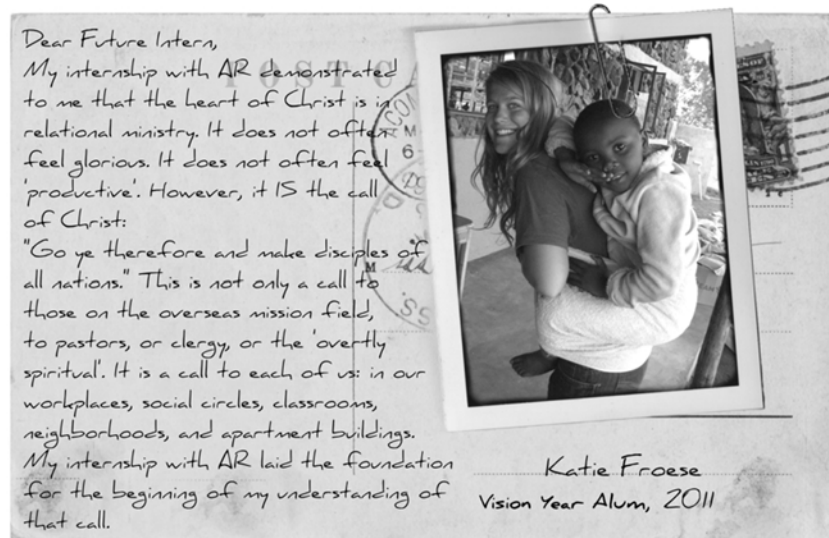 Dear Future Intern,
My internship with AR demonstrated
to me that the heart of Christ is in
relational ministry. It does not often
feel glorious. It does not often feel
'productive'. However, it IS the call
of Christ:
"Go ye therefore and make disciples of
all nations." This is not only a call to
those on the overseas mission field,
to pastors, or clergy, or the 'overtly
spiritual'. It is a call to each of us: in our
workplaces, social circles, classrooms,
neighborhoods, and apartment buildings.
My internship with AR laid the foundation
for the beginning of my understanding of
that call.
Katie Froese
Vision Year Alum, 2011